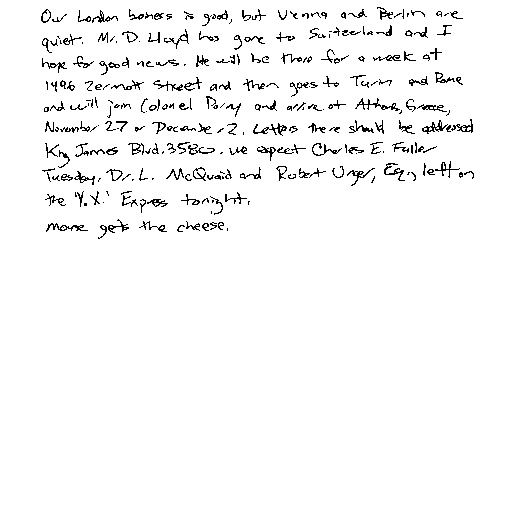 Our London business is good, but Vienna and Berlin are
quiet. Mr. D. Lloyd has gone to Switzerland and I
hope for good news. He will be there for a week at
1496 Zermott Street and then goes to Turin and Rome
and will join Colonel Parry and arrive at Athens, Greece,
November 27 or December 2. Letters there should be addressed
King James Blvd. 3580. We expect Charles E. Fuller
Tuesday. Dr. L. McQuaid and Robert Unger, Esq., left on
the 'Y.X.' Express tonight.
mouse gets the cheese.